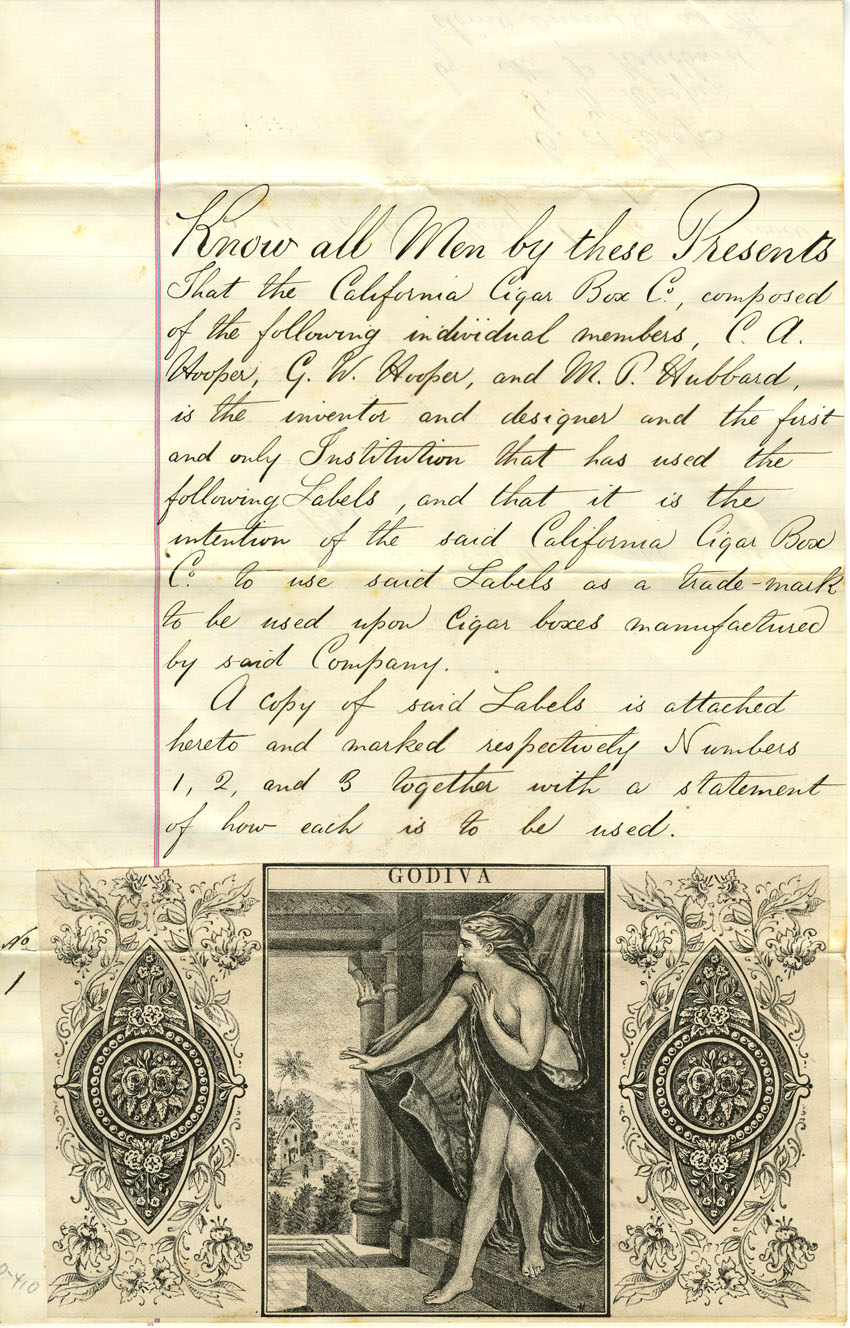 Know all Men by these Presents
That the California Cigar Box Co., composed
of the following individual members, C. A.
Hooper, G. W. Hooper, and M. P. Hubbard,
is the inventor and designer and the first
and only Institution that has used the
following Labels, and that it is the
intention of the said California Cigar Box
Co. to use said Labels as a trade-mark
to be used upon Cigar boxes manufactured
by said Company.
A copy of said Labels is attached
hereto and marked respectively Numbers
1, 2, and 3 together with a statement
of how each is to be used.
GODIVA
No
1